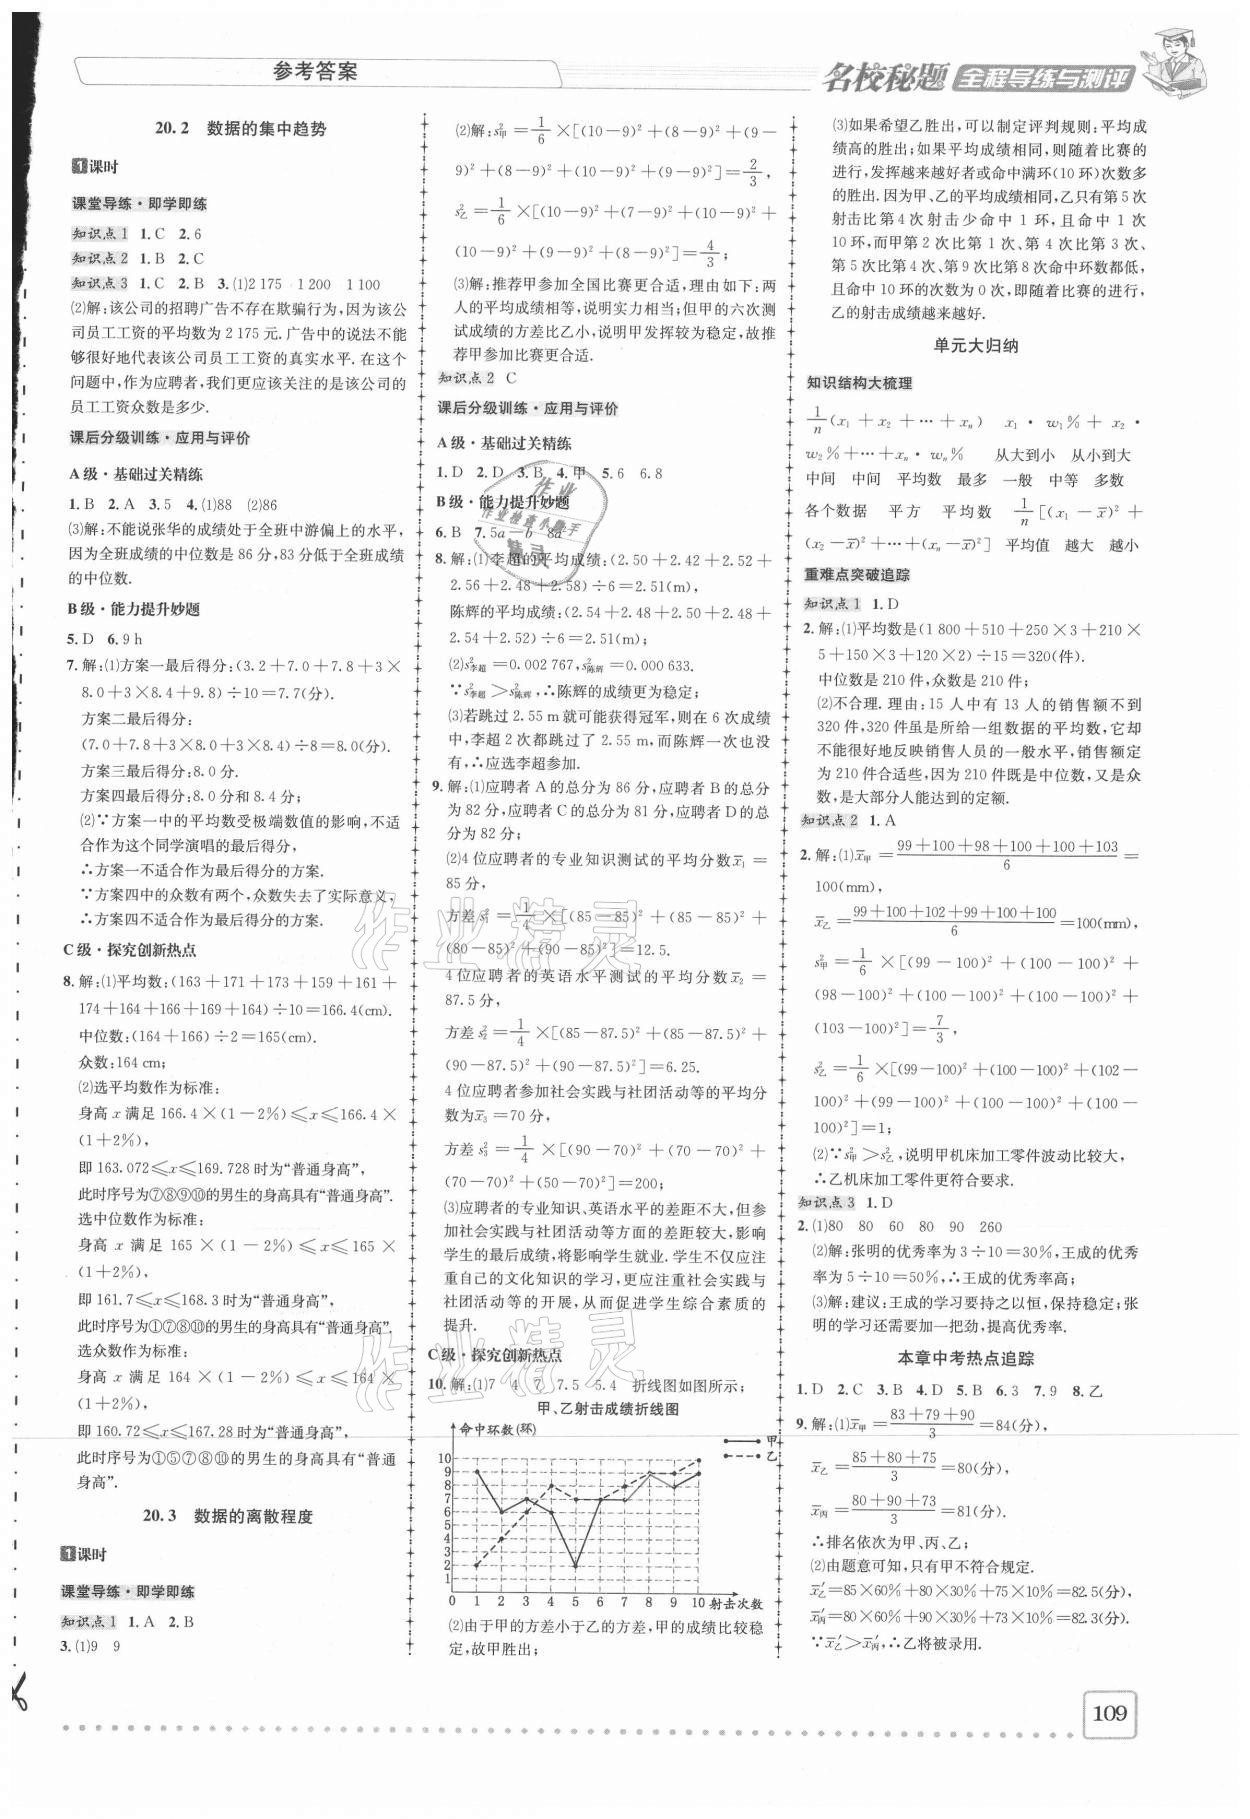 参考答案
名校秘题 全程导练与测评
20.2 数据的集中趋势
1课时
课堂导练·即学即练
知识点1 1.C 2.6
知识点2 1.B 2.C
知识点3 1.C 2.B 3.(1)2 175 1 200 1 100
(2)解:该公司的招聘广告不存在欺骗行为,因为该公
司员工工资的平均数为2 175元.广告中的说法不能
够很好地代表该公司员工工资的真实水平.在这个
问题中,作为应聘者,我们更应该关注的是该公司的
员工工资众数是多少.
课后分级训练·应用与评价
A级·基础过关精练
1.B 2.A 3.5 4.(1)88 (2)86
(3)解:不能说张华的成绩处于全班中游偏上的水平,
因为全班成绩的中位数是86分,83分低于全班成绩
的中位数.
B级·能力提升妙题
5.D 6.9 h
7.解:(1)方案一最后得分:(3.2+7.0+7.8+3×
8.0+3×8.4+9.8)÷10=7.7(分).
方案二最后得分:
(7.0+7.8+3×8.0+3×8.4)÷8=8.0(分).
方案三最后得分:8.0分.
方案四最后得分:8.0分和8.4分;
(2)∵方案一中的平均数受极端数值的影响,不适
合作为这个同学演唱的最后得分,
∴方案一不适合作为最后得分的方案.
∵方案四中的众数有两个,众数失去了实际意义,
∴方案四不适合作为最后得分的方案.
C级·探究创新热点
8.解:(1)平均数:(163+171+173+159+161+
174+164+166+169+164)÷10=166.4(cm).
中位数:(164+166)÷2=165(cm).
众数:164 cm;
(2)选平均数作为标准:
身高x满足166.4×(1-2%)≤x≤166.4×
(1+2%),
即163.072≤x≤169.728时为“普通身高”,
此时序号为⑦⑧⑨⑩的男生的身高具有“普通身高”.
选中位数作为标准:
身高x满足165×(1-2%)≤x≤165×
(1+2%),
即161.7≤x≤168.3时为“普通身高”,
此时序号为①⑦⑧⑩的男生的身高具有“普通身高”.
选众数作为标准:
身高x满足164×(1-2%)≤x≤164×
(1+2%),
即160.72≤x≤167.28时为“普通身高”,
此时序号为①⑤⑦⑧⑩的男生的身高具有“普通
身高”.
20.3 数据的离散程度
1课时
课堂导练·即学即练
知识点1 1.A 2.B
3.(1)9 9
(2)解:s²甲=1/6×[(10-9)²+(8-9)²+(9-
9)²+(8-9)²+(10-9)²+(9-9)²]=2/3,
s²乙=1/6×[(10-9)²+(7-9)²+(10-9)²+
(10-9)²+(9-9)²+(8-9)²]=4/3;
(3)解:推荐甲参加全国比赛更合适,理由如下:两
人的平均成绩相等,说明实力相当;但甲的六次测
试成绩的方差比乙小,说明甲发挥较为稳定,故推
荐甲参加比赛更合适.
知识点2 C
课后分级训练·应用与评价
A级·基础过关精练
1.D 2.D 3.B 4.甲 5.6 6.8
B级·能力提升妙题
6.B 7.5a-b 8a²
8.解:(1)李超的平均成绩:(2.50+2.42+2.52+
2.56+2.48+2.58)÷6=2.51(m),
陈辉的平均成绩:(2.54+2.48+2.50+2.48+
2.54+2.52)÷6=2.51(m);
(2)s²李超=0.002 767,s²陈辉=0.000 633.
∵s²李超>s²陈辉,∴陈辉的成绩更为稳定;
(3)若跳过2.55 m就可能获得冠军,则在6次成绩
中,李超2次都跳过了2.55 m,而陈辉一次也没
有,∴应选李超参加.
9.解:(1)应聘者A的总分为86分,应聘者B的总分
为82分,应聘者C的总分为81分,应聘者D的总
分为82分;
(2)4位应聘者的专业知识测试的平均分数x̄₁=
85分,
方差s²₁=1/4×[(85-85)²+(85-85)²+
(80-85)²+(90-85)²]=12.5.
4位应聘者的英语水平测试的平均分数x̄₂=
87.5分,
方差s²₂=1/4×[(85-87.5)²+(85-87.5)²+
(90-87.5)²+(90-87.5)²]=6.25.
4位应聘者参加社会实践与社团活动等的平均分
数为x̄₃=70分,
方差s²₃=1/4×[(90-70)²+(70-70)²+
(70-70)²+(50-70)²]=200;
(3)应聘者的专业知识、英语水平的差距不大,但参
加社会实践与社团活动等方面的差距较大,影响
学生的最后成绩,将影响学生就业.学生不仅应注
重自己的文化知识的学习,更应注重社会实践与
社团活动等的开展,从而促进学生综合素质的
提升.
C级·探究创新热点
10.解:(1)7 4 7 7.5 5.4 折线图如图所示;
甲、乙射击成绩折线图
命中环数(环)
甲
乙
10
9
8
7
6
5
4
3
2
1
0 1 2 3 4 5 6 7 8 9 10 射击次数
(2)由于甲的方差小于乙的方差,甲的成绩比较稳
定,故甲胜出;
(3)如果希望乙胜出,可以制定评判规则:平均成
绩高的胜出;如果平均成绩相同,则随着比赛的
进行,发挥越来越好者或命中满环(10环)次数多
的胜出.因为甲、乙的平均成绩相同,乙只有第5次
射击比第4次射击少命中1环,且命中1次
10环,而甲第2次比第1次、第4次比第3次、
第5次比第4次、第9次比第8次命中环数都低,
且命中10环的次数为0次,即随着比赛的进行,
乙的射击成绩越来越好.
单元大归纳
知识结构大梳理
1/n(x₁+x₂+⋯+xₙ) x₁·w₁%+x₂·
w₂%+⋯+xₙ·wₙ% 从大到小 从小到大
中间 中间 平均数 最多 一般 中等 多数
各个数据 平方 平均数 1/n[(x₁-x̄)²+
(x₂-x̄)²+⋯+(xₙ-x̄)²] 平均值 越大 越小
重难点突破追踪
知识点1 1.D
2.解:(1)平均数是(1 800+510+250×3+210×
5+150×3+120×2)÷15=320(件).
中位数是210件,众数是210件;
(2)不合理.理由:15人中有13人的销售额不到
320件,320件虽是所给一组数据的平均数,它却
不能很好地反映销售人员的一般水平,销售额定
为210件合适些,因为210件既是中位数,又是众
数,是大部分人能达到的定额.
知识点2 1.A
2.解:(1)x̄甲=(99+100+98+100+100+103)/6=
100(mm),
x̄乙=(99+100+102+99+100+100)/6=100(mm),
s²甲=1/6×[(99-100)²+(100-100)²+
(98-100)²+(100-100)²+(100-100)²+
(103-100)²]=7/3,
s²乙=1/6×[(99-100)²+(100-100)²+(102-
100)²+(99-100)²+(100-100)²+(100-
100)²]=1;
(2)∵s²甲>s²乙,说明甲机床加工零件波动比较大,
∴乙机床加工零件更符合要求.
知识点3 1.D
2.(1)80 80 60 80 90 260
(2)解:张明的优秀率为3÷10=30%,王成的优秀
率为5÷10=50%,∴王成的优秀率高;
(3)解:建议:王成的学习要持之以恒,保持稳定;张
明的学习还需要加一把劲,提高优秀率.
本章中考热点追踪
1.D 2.C 3.B 4.D 5.B 6.3 7.9 8.乙
9.解:(1)x̄甲=(83+79+90)/3=84(分),
x̄乙=(85+80+75)/3=80(分),
x̄丙=(80+90+73)/3=81(分).
∴排名依次为甲、丙、乙;
(2)由题意可知,只有甲不符合规定.
x̄′乙=85×60%+80×30%+75×10%=82.5(分),
x̄′丙=80×60%+90×30%+73×10%=82.3(分).
∵x̄′乙>x̄′丙,∴乙将被录用.
109
作业精灵
作业精灵
作业
作业检查小助手
精灵